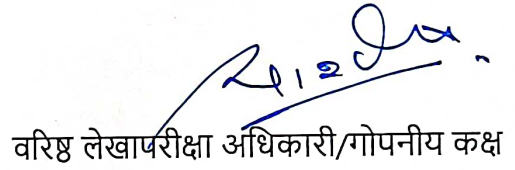 वरिष्ठ लेखापरीक्षा अधिकारी/गोपनीय कक्ष